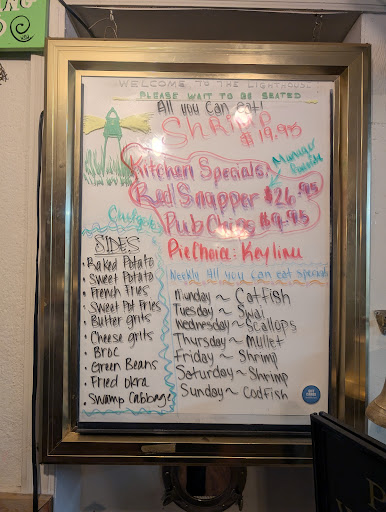 WELCOME TO THE LIGHTHOUSE
PLEASE WAIT TO BE SEATED
All you Can Eat!
SHRIMP
$19.95
Kitchen Specials:
Manager
Favorite
Red Snapper $26.95
Pub Chips $9.95
Pie Choice: Keylime
Weekly All you can eat specials
Munday ~ Catfish
Tuesday ~ Swai
Wednesday ~ Scallops
Thursday ~ Mullet
Friday ~ Shrimp
Saturday ~ Shrimp
Sunday ~ Codfish
SIDES
• Baked Potato
• Sweet Potato
• French Fries
• Sweet Pot Fries
• Butter grits
• Cheese grits
• Broc
• Green Beans
• Fried Okra
• Swamp Cabbage